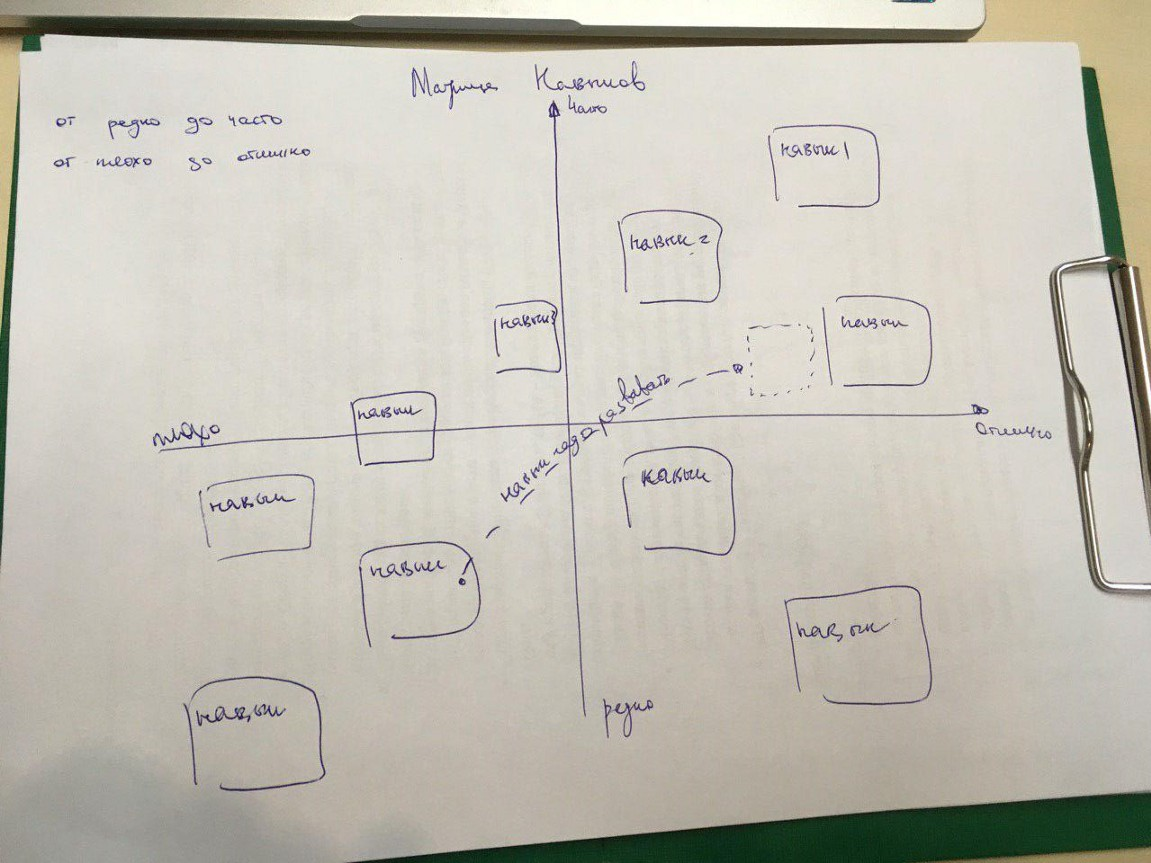 Матрица Навыков
от редко до часто
от плохо до отлично
Часто
навык 1
навык 2
навык 3
навык
навык надо развивать
навык
плохо
Отлично
навык
навык
навык
навык
навык
редко
навык